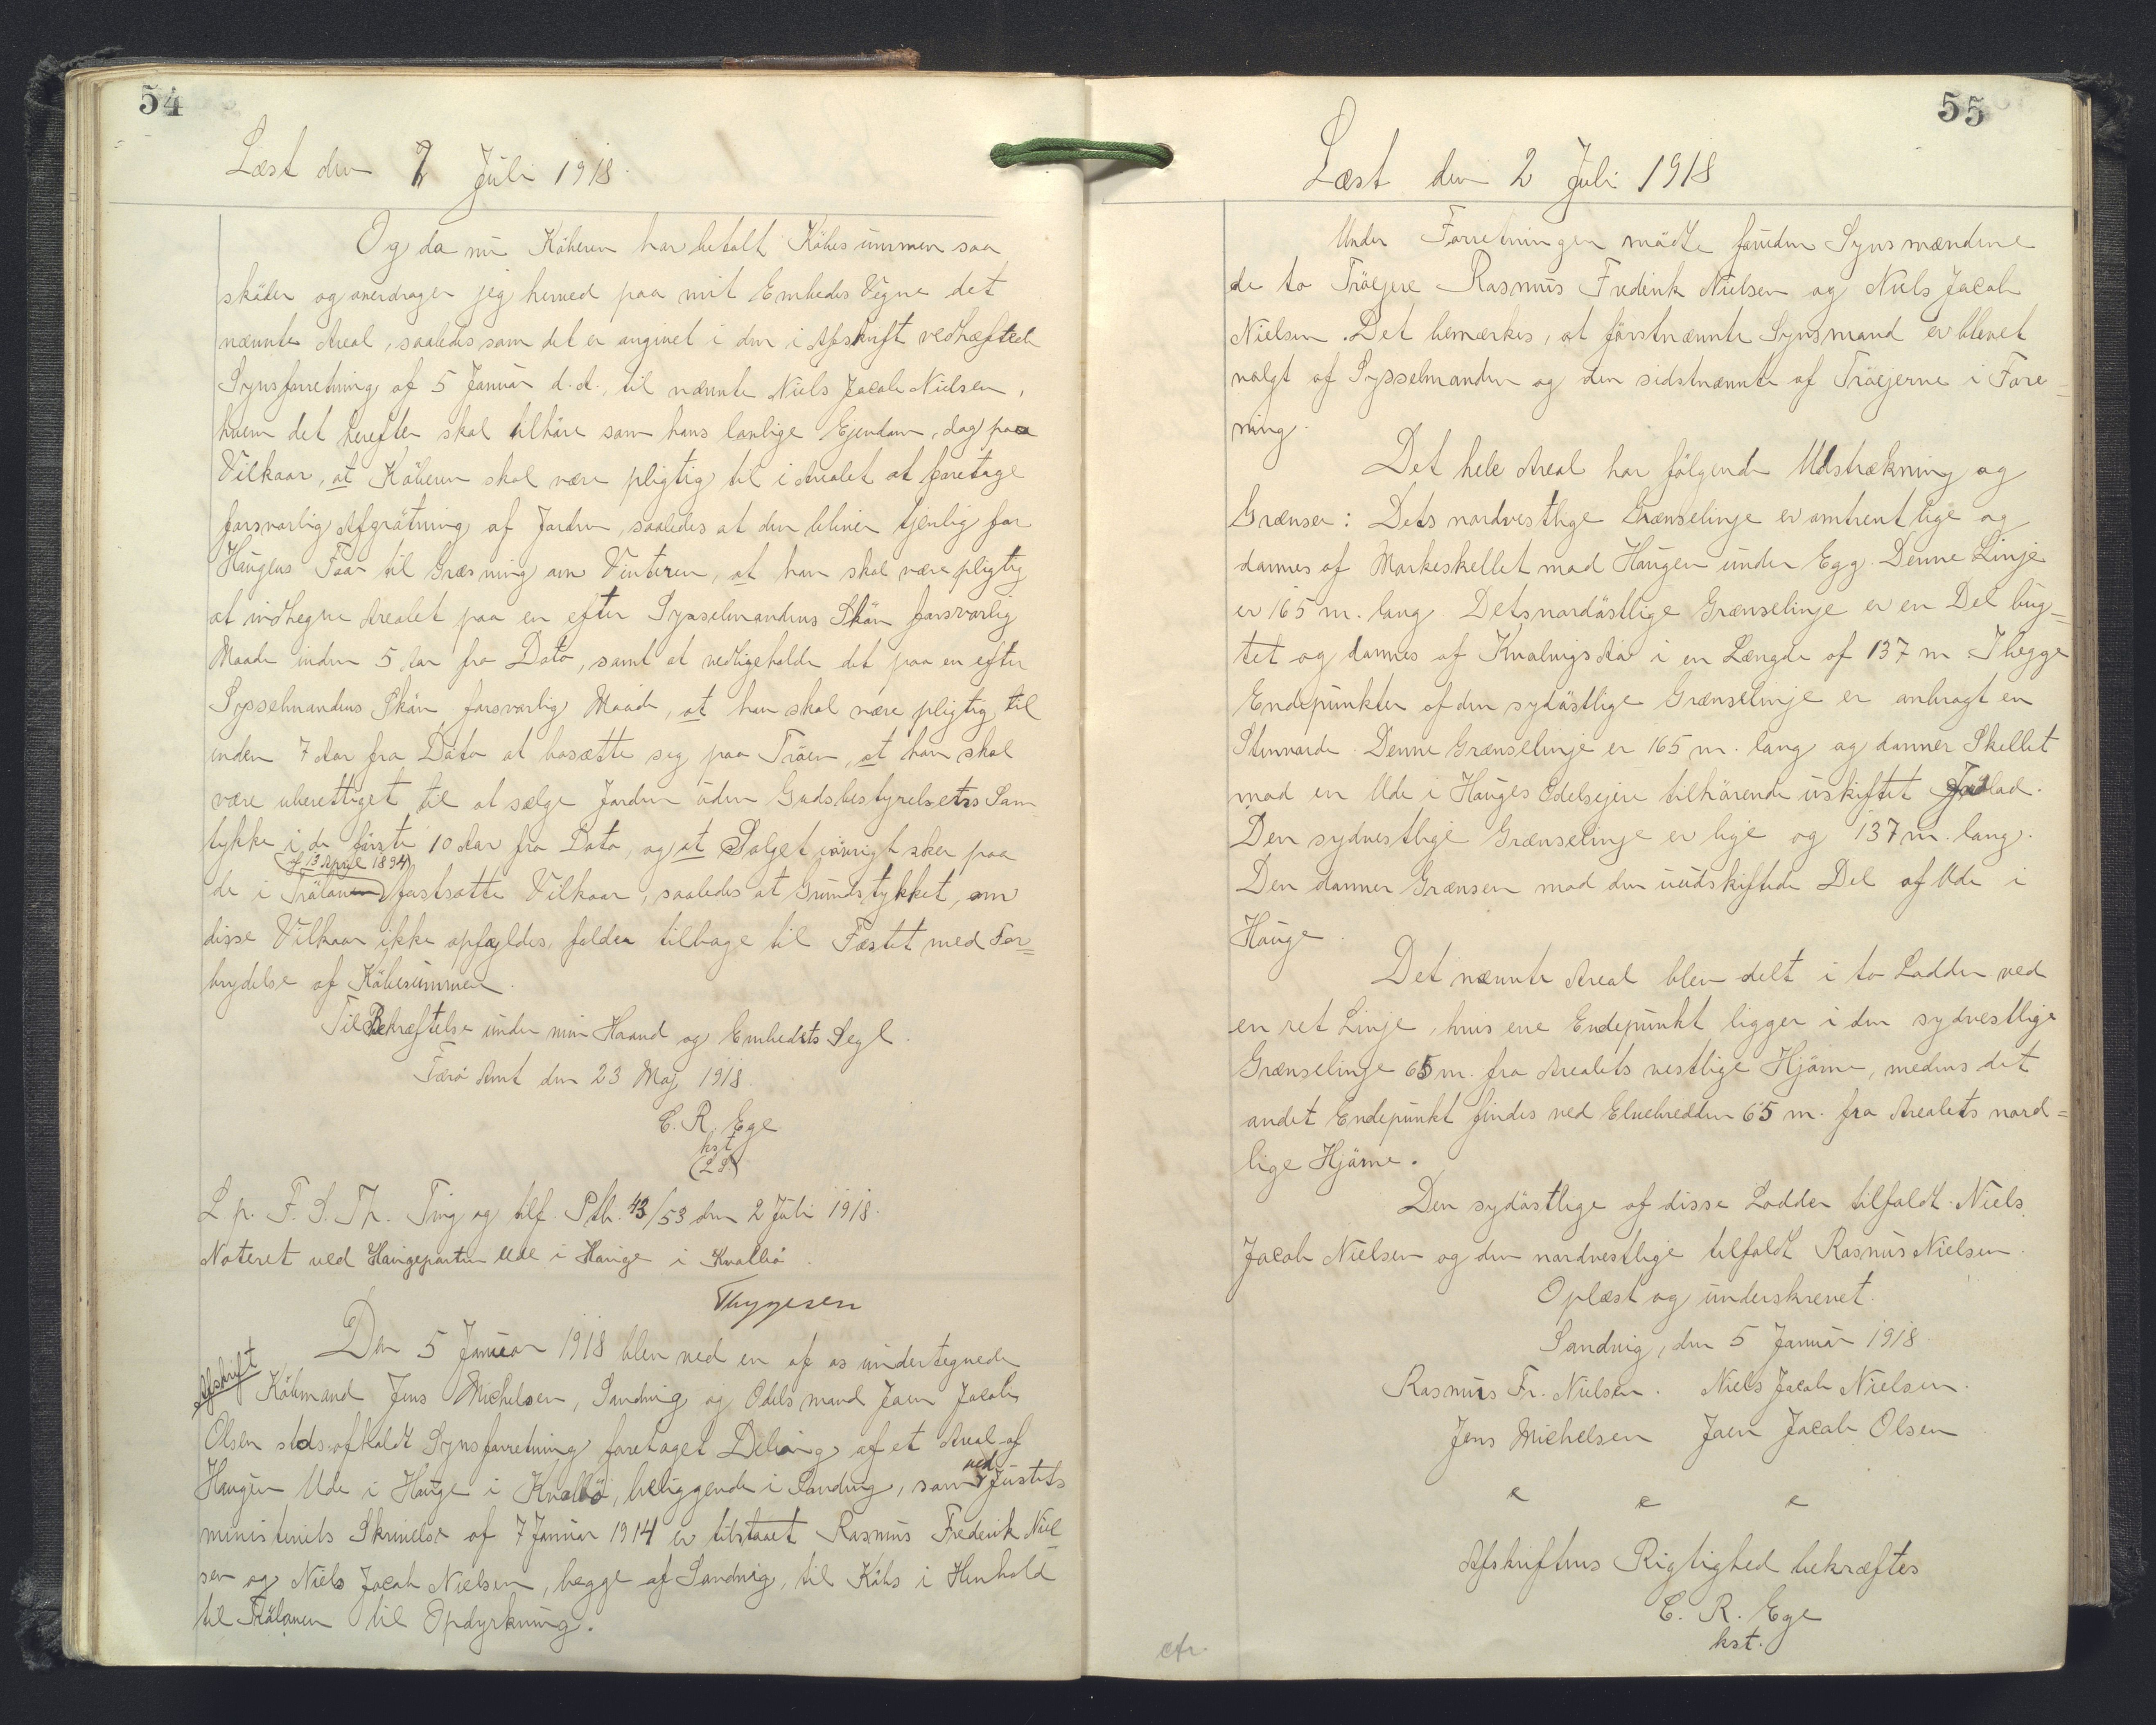 54
Læst den 2 Juli 1918.
Og da nu Köberen har betalt Köbesummen saa
sköder og overdrager jeg herved paa mit Embedes Vegne det
nævnte Areal, saaledes som det er angivet i den i Afskrift vedhæftede
Synsforretning af 5 Januar d.A., til nævnte Niels Jacob Nielsen,
hvem det herefter skal tilhöre som hans lovlige Ejendom, dog paa
Vilkaar, at Köberen skal være pligtig til i Arealet at foretage
forsvarlig Afgrötning af Jorden, saaledes at den bliver tjenlig for
Haugens Faar til Græsning om Vinteren, at han skal være pligtig
at indhegne Arealet paa en efter Sysselmandens Skön forsvarlig
Maade inden 5 Aar fra Dato, samt at vedligeholde det paa en efter
Sysselmandens Skön forsvarlig Maade, at han skal være pligtig til
inden 7 Aar fra Dato at bosætte sig paa Tröen, at han skal
være uberettiget til at sælge Jorden uden Godsbestyrelsens Sam
tykke i de förste 10 Aar fra Dato, og at Salget iövrigt sker paa
af 13 April 1894
de i Trölove fastsatte Vilkaar, saaledes at Grundstykket, om
disse Vilkaar ikke opfyldes, falder tilbage til Fæstet med For=
brydelse af Köbesummen.
Til Bekræftelse under min Haand og Embedets Segl.
Færö Amt den 23 Maj 1918.
C. R. Ege
kst.
(L S)
L. p. F. S. Th. Ting og tilf. Ptb. 43/53 den 2 Juli 1918.
Noteret ved Haugeparten Ude i Hauge i Kvalbö.
Thygesen
Afskrift
Den 5 Januar 1918 blev ved en af os undertegnede
Köbmand Jens Michelsen, Sandvig og Odelsmand Joen Jacob
Olsen sts. afholdt Synsforretning foretaget Deling af et Areal af
Haugen Ude i Hauge i Kvalbö, beliggende i Sandvig, som ved Justits
ministeriets Skrivelse af 7 Januar 1914 er tilstaaet Rasmus Frederik Niel
sen og Niels Jacob Nielsen, begge af Sandvig, til Köbs i Henhold
til Tröloven til Opdyrkning.
55
Læst den 2 Juli 1918
Under Forretningen mödte foruden Synsmændene
de to Tröejere Rasmus Frederik Nielsen og Niels Jacob
Nielsen. Det bemærkes, at förstnævnte Synsmand er blevet
valgt af Sysselmanden og den sidstnævnte af Tröejerne i Fore=
ning.
Det hele Areal har fölgende Udstrækning og
Grænser: Dets nordvestlige Grænselinje er omtrent lige og
dannes af Markeskellet mod Haugen under Egg. Denne Linje
er 165 m. lang. Dets nordöstlige Grænselinje er en Del bug=
tet og dannes af Kvalvigs Aa i en Længde af 137 m. I begge
Endepunkter af den sydöstlige Grænselinje er anbragt en
Stenvarde. Denne Grænselinje er 165 m. lang og danner Skellet
mod en Ude i Hauges Odelsejere tilhörende uskiftet Jordlod.
Den sydvestlige Grænselinje er lige og 137 m. lang.
Den danner Grænsen mod den uudskiftede Del af Ude i
Hauge.
Det nævnte Areal blev delt i to Lodder ved
en ret Linje, hvis ene Endepunkt ligger i den sydvestlige
Grænselinje 65 m. fra Arealets vestlige Hjörne, medens det
andet Endepunkt findes ved Elvebredden 65 m. fra Arealets nord=
lige Hjörne.
Den sydöstlige af disse Lodder tilfaldt Niels
Jacob Nielsen og den nordvestlige tilfaldt Rasmus Nielsen.
Oplæst og underskrevet.
Sandvig, den 5 Januar 1918.
Rasmus Fr. Nielsen. Niels Jacob Nielsen.
Jens Michelsen Joen Jacob Olsen
Afskriftens Rigtighed bekræftes
C. R. Ege
kst.
cfr.